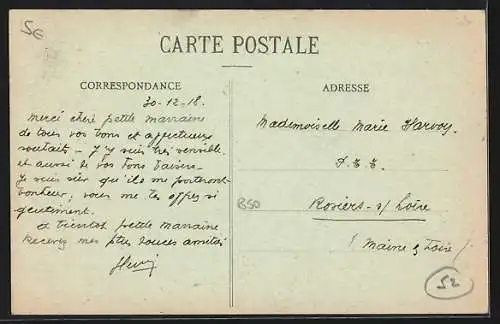 5€
CARTE POSTALE
CORRESPONDANCE
30-12-18.
Merci chère petite marraine
de tous vos bons et affectueux
souhaits - J'y suis très sensible
et aussi à vos bons baisers -
Je suis sûr qu'ils me porteront
bonheur, vous me les offres si
gentiment.
A bientôt petite marraine
Recevez mes plus douces amitiés
Henri
ADRESSE
Mademoiselle Marie Harvoy.
Rosiers-s/ Loire
(Maine & Loire)
B50
52